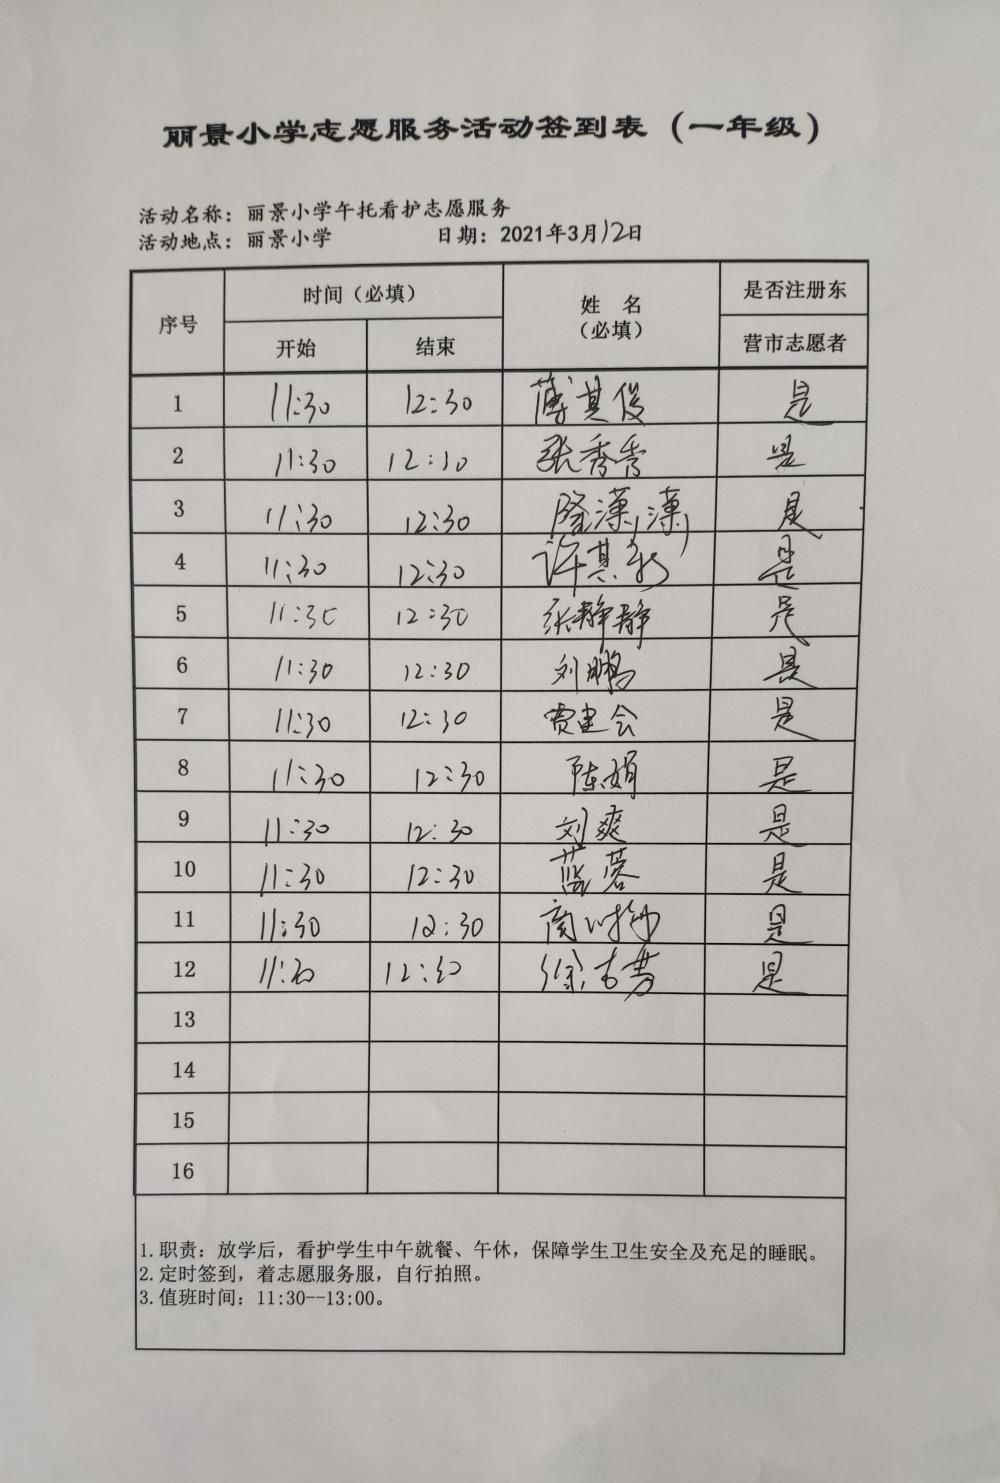 丽景小学志愿服务活动签到表（一年级）
活动名称：丽景小学午托看护志愿服务
活动地点：丽景小学 日期：2021年3月12日
序号 时间（必填） 姓名（必填） 是否注册东营市志愿者
开始 结束
1 11:30 12:30 薄其俊 是
2 11:30 12:30 张秀秀 是
3 11:30 12:30 隆潇潇 是
4 11:30 12:30 许其 是
5 11:30 12:30 张静静 是
6 11:30 12:30 刘鹏 是
7 11:30 12:30 费建会 是
8 11:30 12:30 陈娟 是
9 11:30 12:30 刘爽 是
10 11:30 12:30 蓝蓉 是
11 11:30 12:30 商 是
12 11:30 12:30 徐 是
13
14
15
16
1.职责：放学后，看护学生中午就餐、午休，保障学生卫生安全及充足的睡眠。
2.定时签到，着志愿服务服，自行拍照。
3.值班时间：11:30--13:00。